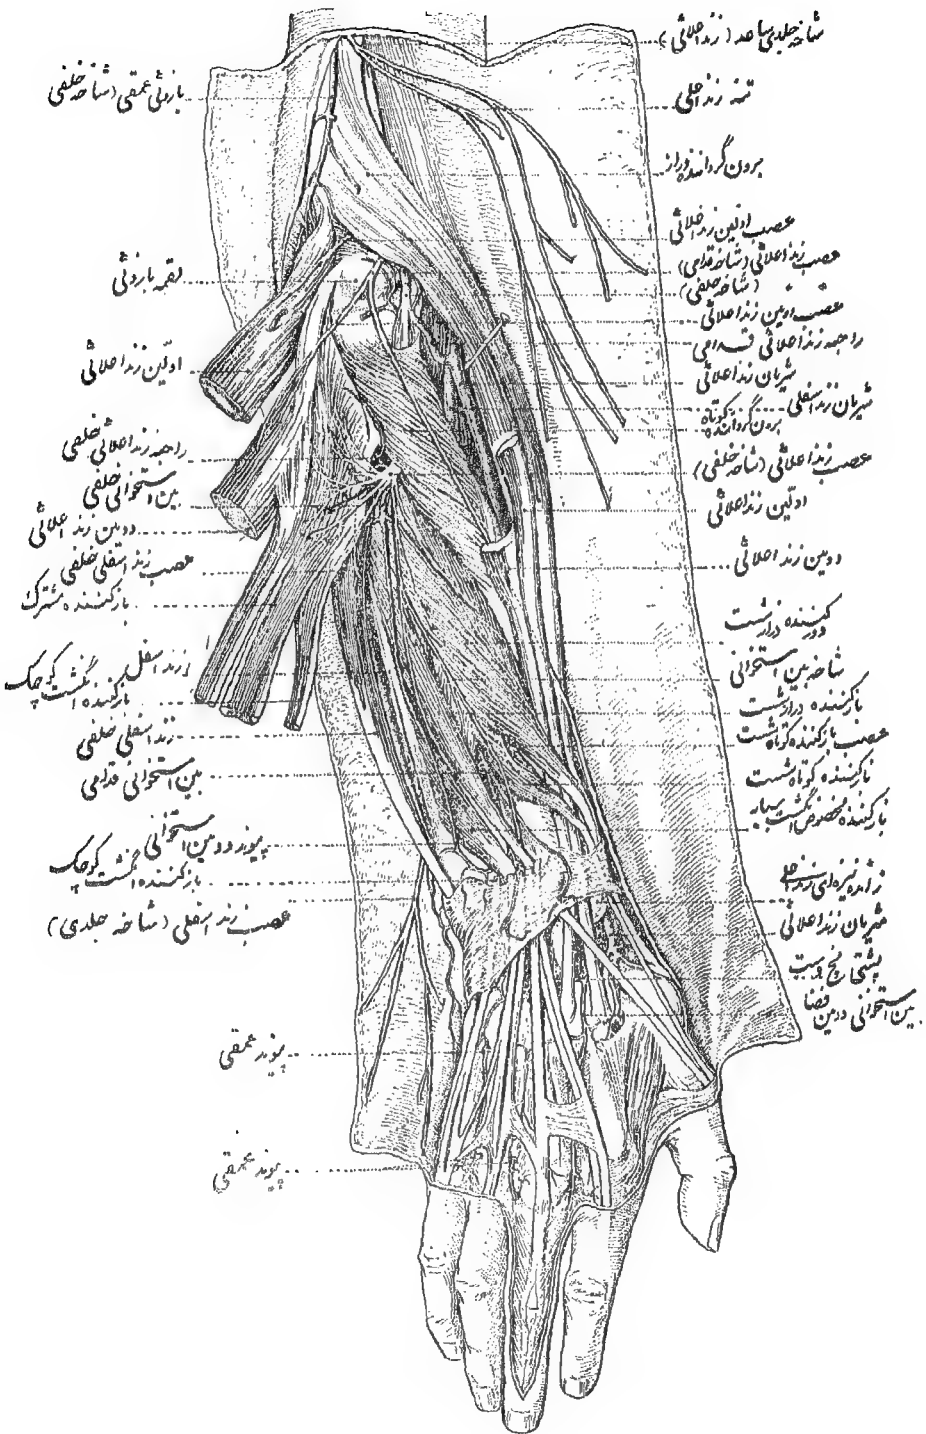 شاخه جلدی ساعد (زند اعلائی)
تنه زند اعلی
برون گرداننده دراز
عصب اولین زند اعلائی
عصب زند اعلائی (شاخه قدامی)
(شاخه خلفی)
عصب دومین زند اعلائی
راجعه زند اعلائی قدامی
شریان زند اعلائی
شریان زند اسفلی
برون گرداننده کوتاه
عصب زند اعلائی (شاخه خلفی)
اولین زند اعلائی
دومین زند اعلائی
دور کننده دراز شست
شاخه بین استخوانی
باز کننده دراز شست
عصب باز کننده کوتاه شست
باز کننده کوتاه شست
باز کننده مخصوص انگشت سبابه
زائده نیزه‌ای زند اعلی
شریان زند اعلائی
پشتی مچ دست
بین استخوانی دومین فضا
بازوئی عمقی (شاخه خلفی)
لقمه بازوئی
اولین زند اعلائی
راجعه زند اعلائی خلفی
بین استخوانی خلفی
دومین زند اعلائی
عصب زند اسفلی خلفی
باز کننده مشترک
زند اسفل
باز کننده انگشت کوچک
زند اسفلی خلفی
بین استخوانی قدامی
پیوند دومین استخوانی
باز کننده انگشت کوچک
عصب زند اسفلی (شاخه جلدی)
پیوند عمقی
پیوند عمقی